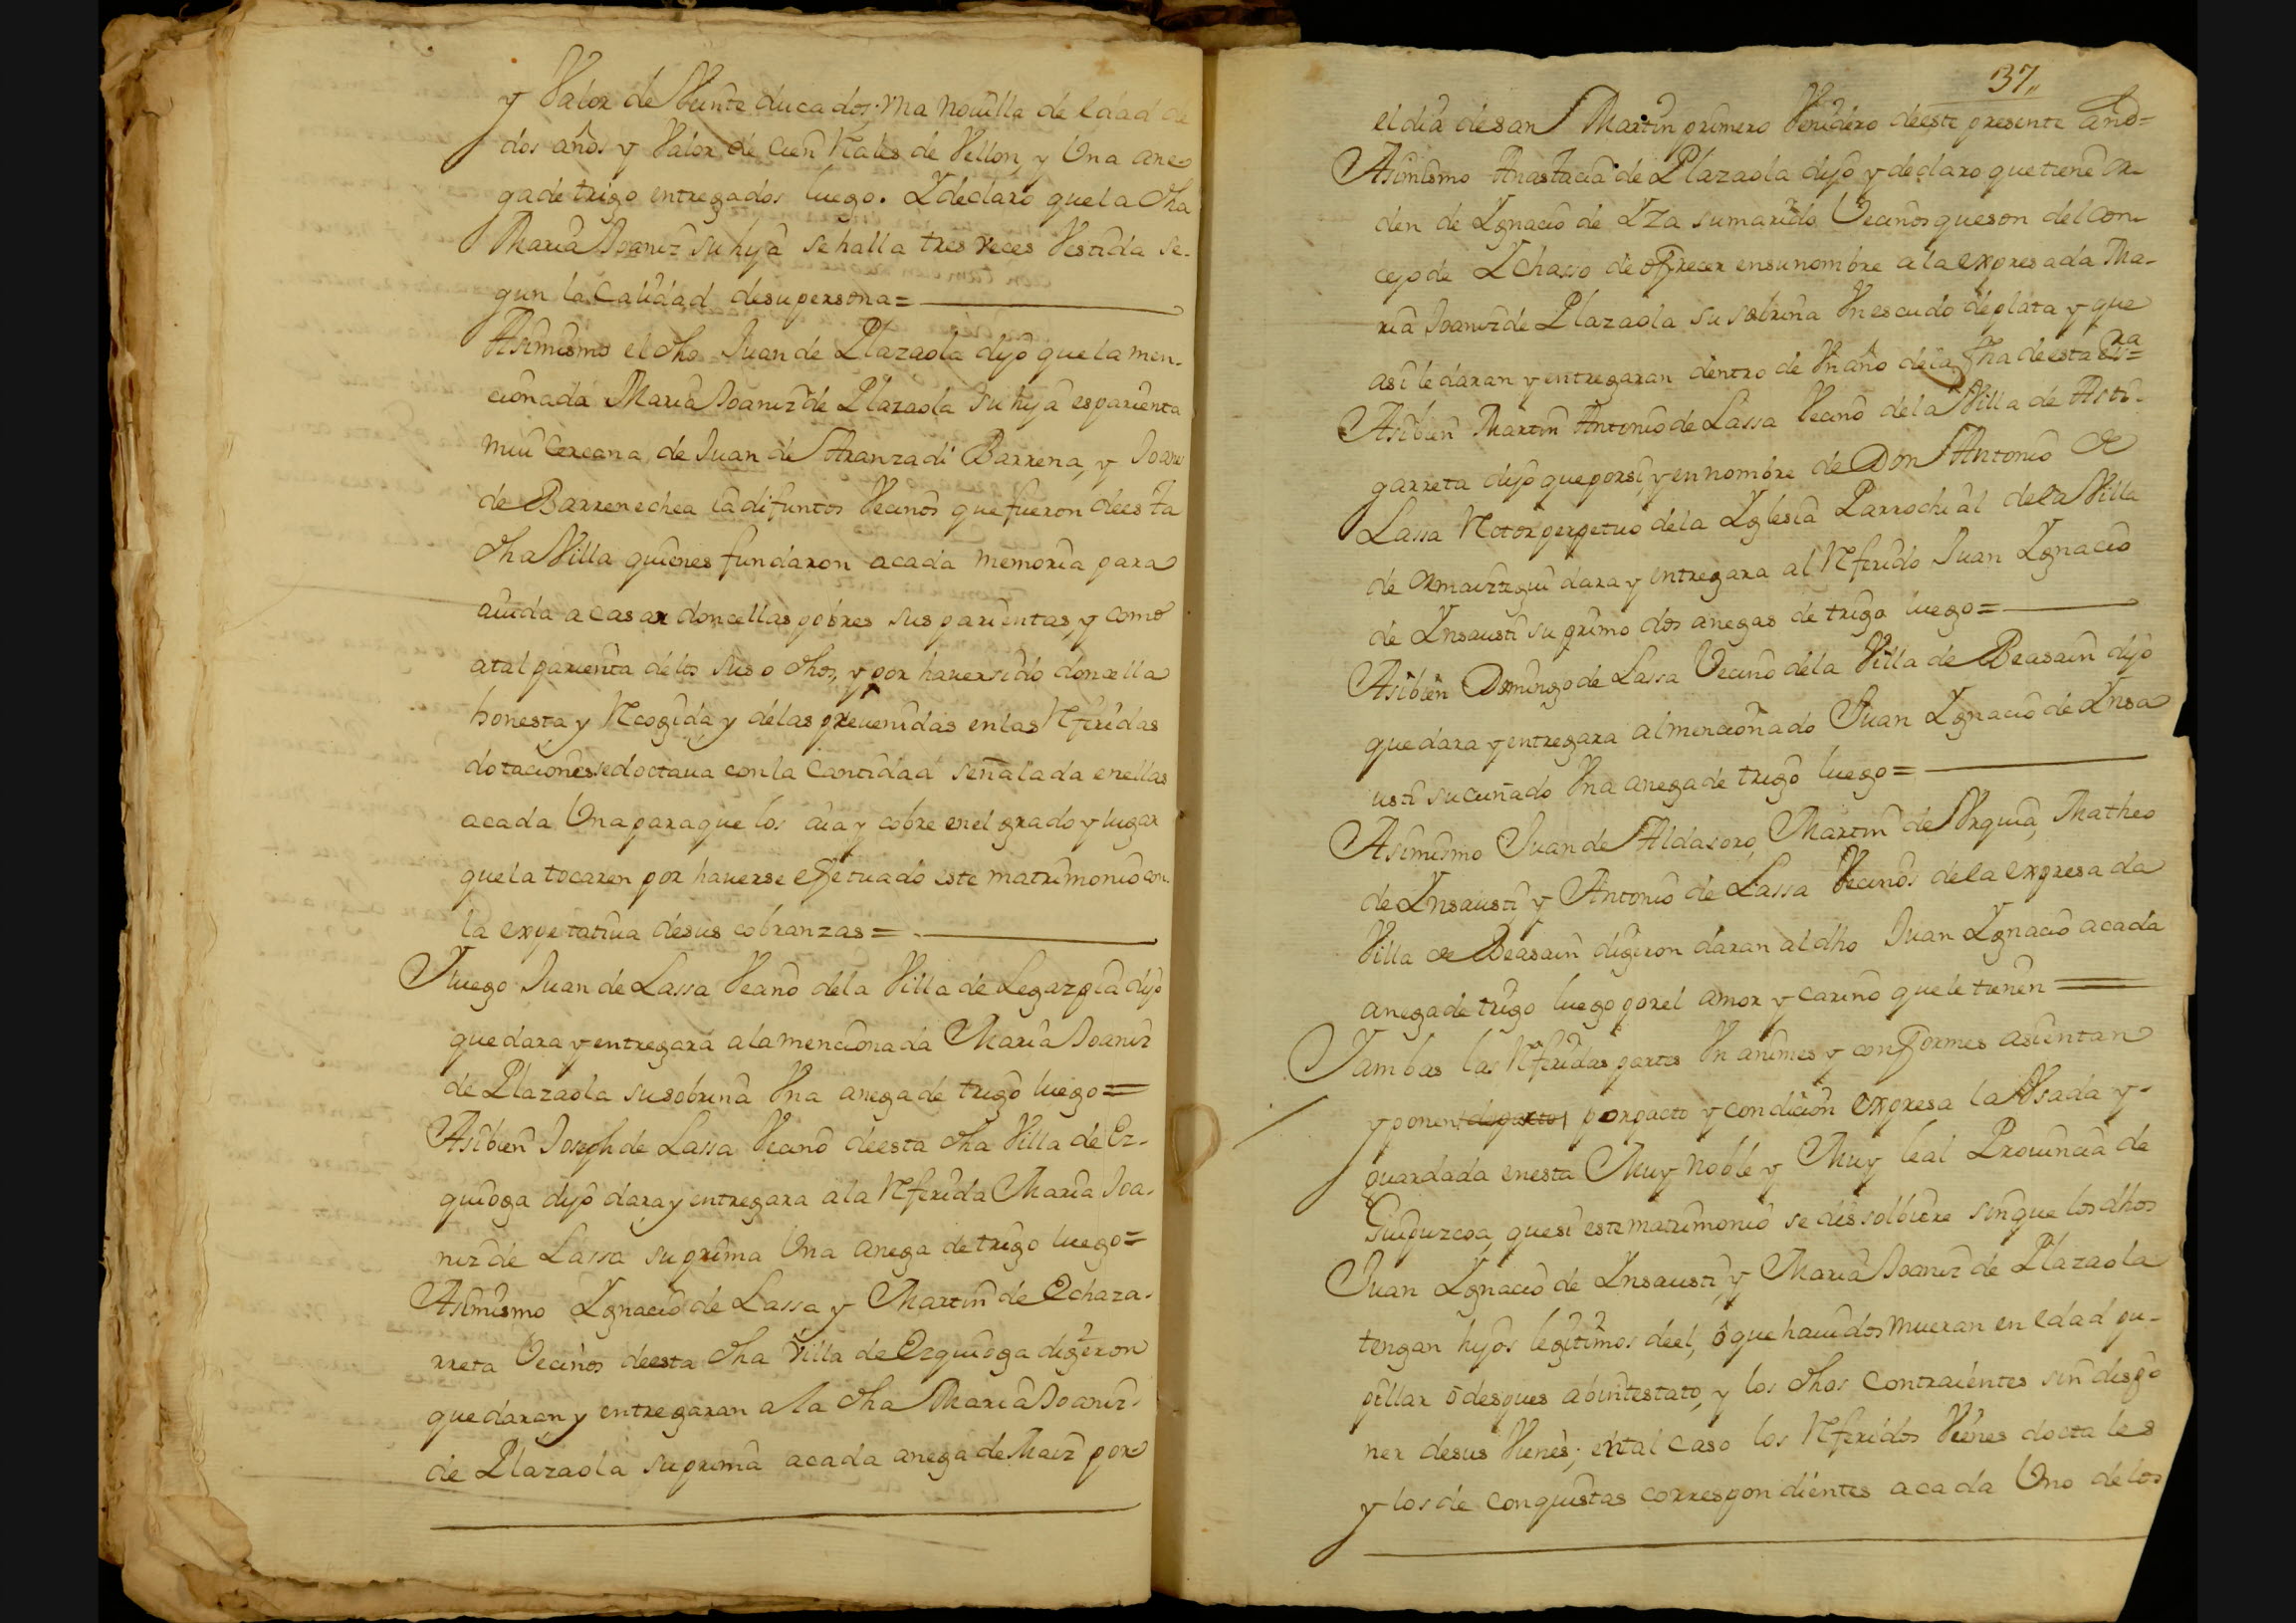 y Valor de Veinte ducados. Vna nouilla de edad de
dos años y Valor de cien Rales de Vellon, y Una ane-
ga de trigo entregados luego. Y declaro que la dha
Maria Joaniz su hija se halla tres veces Vestida se-
gun la Calidad de su persona =
Asimismo el dho Juan de Plazaola dijo que la men-
cionada Maria Joaniz de Plazaola su hija es parienta
mui Cercana de Juan de Aranzadi Barrena, y Joana
de Barrenechea ia difuntos Vecinos que fueron de esta
dha Villa quienes fundaron acada memoria para
aiuda a casar doncellas pobres sus parientas, y como
a tal parienta de los suso dhos, y por hauer sido doncella
honesta y Recogida y de las preuenidas en las Referidas
dotaciones se doctaua con la Cantidad señalada en ellas
acada Una para que los aia y cobre en el grado y lugar
que la tocaren por hauerse efetuado este matrimonio con
la expetatiua de sus cobranzas =
Yluego Juan de Lassa Vecino de la Villa de Legazpia dijo
que dara y entregará a la mencionada Maria Joaniz
de Plazaola su sobrina Vna anega de trigo luego =
Asibien Joseph de Lassa Vecino de esta dha Villa de Ez-
quioga dijo dara y entregara a la Referida Maria Joa-
niz de Lassa su prima Una anega de trigo luego =
Asimismo Ygnacio de Lassa y Martin de Echaza-
rreta Vecinos de esta dha villa de Ezquioga digeron
que daran y entregaran a la dha Maria Joaniz
de Plazaola su prima acada anega de Maiz por
37
el dia de san Martin primero Venidero de este presente año =
Asimismo Anastacia de Plazaola dijo y declaro que tiene or-
den de Ygnacio de Yza su marido Vecinos que son del con-
cejo de Ychasso de ofrecer en su nombre a la expresada Ma-
ria Joaniz de Plazaola su sobrina Vn escudo de plata y que
asi le daran y entregaran dentro de Vn año de la fha de esta esra =
Asibien Martin Antonio de Lassa Vecino de la Villa de Asti-
garreta dijo que por si, y en nombre de Don Antonio de
Lassa Retor perpetuo de la Yglesia Parrochial de la Villa
de ormaiztegui dara y entregara al Referido Juan Ygnacio
de Ynsausti su primo dos anegas de trigo luego =
Asibien Domingo de Lassa Vecino de la Villa de Beasain dijo
que dara y entregara al mencionado Juan Ygnacio de Ynsa
usti su cuñado Vna anega de trigo luego =
Asimismo Juan de Aldasoro, Martin de Vrquia, Matheo
de Ynsausti y Antonio de Lassa Vecinos de la expresada
Villa de Beasain digeron daran al dho Juan Ygnacio acada
anega de trigo luego por el amor y cariño que le tienen =
Y ambas las Referidas partes Vnanimes y conformes asientan
y ponen de pacto por pacto y condicion expresa la Vsada y
guardada en esta Muy Noble y Muy leal Prouincia de
Guipuzcoa, que si este matrimonio se dissolbiere sin que los dhos
Juan Ygnacio de Ynsausti, y Maria Joaniz de Plazaola
tengan hijos legitimos de el, ó que hauidos mueran en edad pu-
pillar ó despues abintestato, y los dhos Contraientes sin dispo
ner de sus Vienes; en tal caso los Referidos Vienes doctales
y los de Conquistas correspondientes acada Uno de los